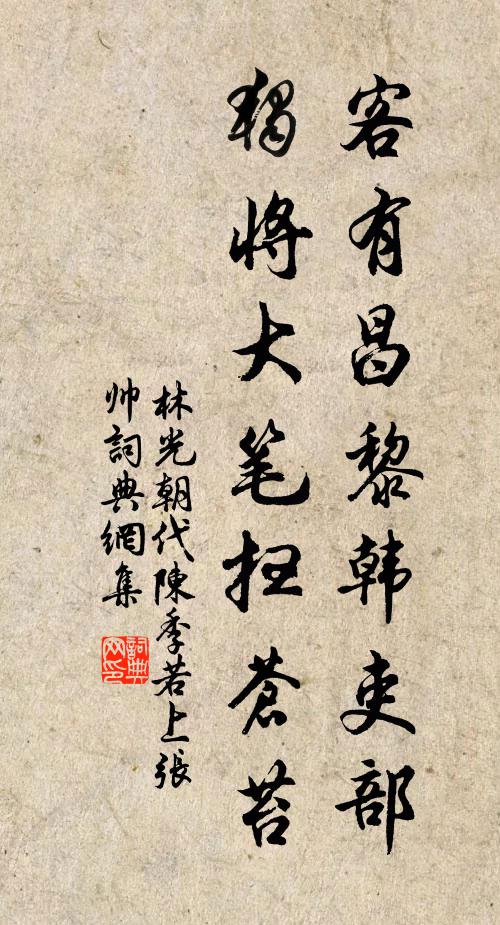 客有昌黎韩吏部
独将大笔扫苍苔
林光朝代陳季若上張
帅詞典網集
詞典网印